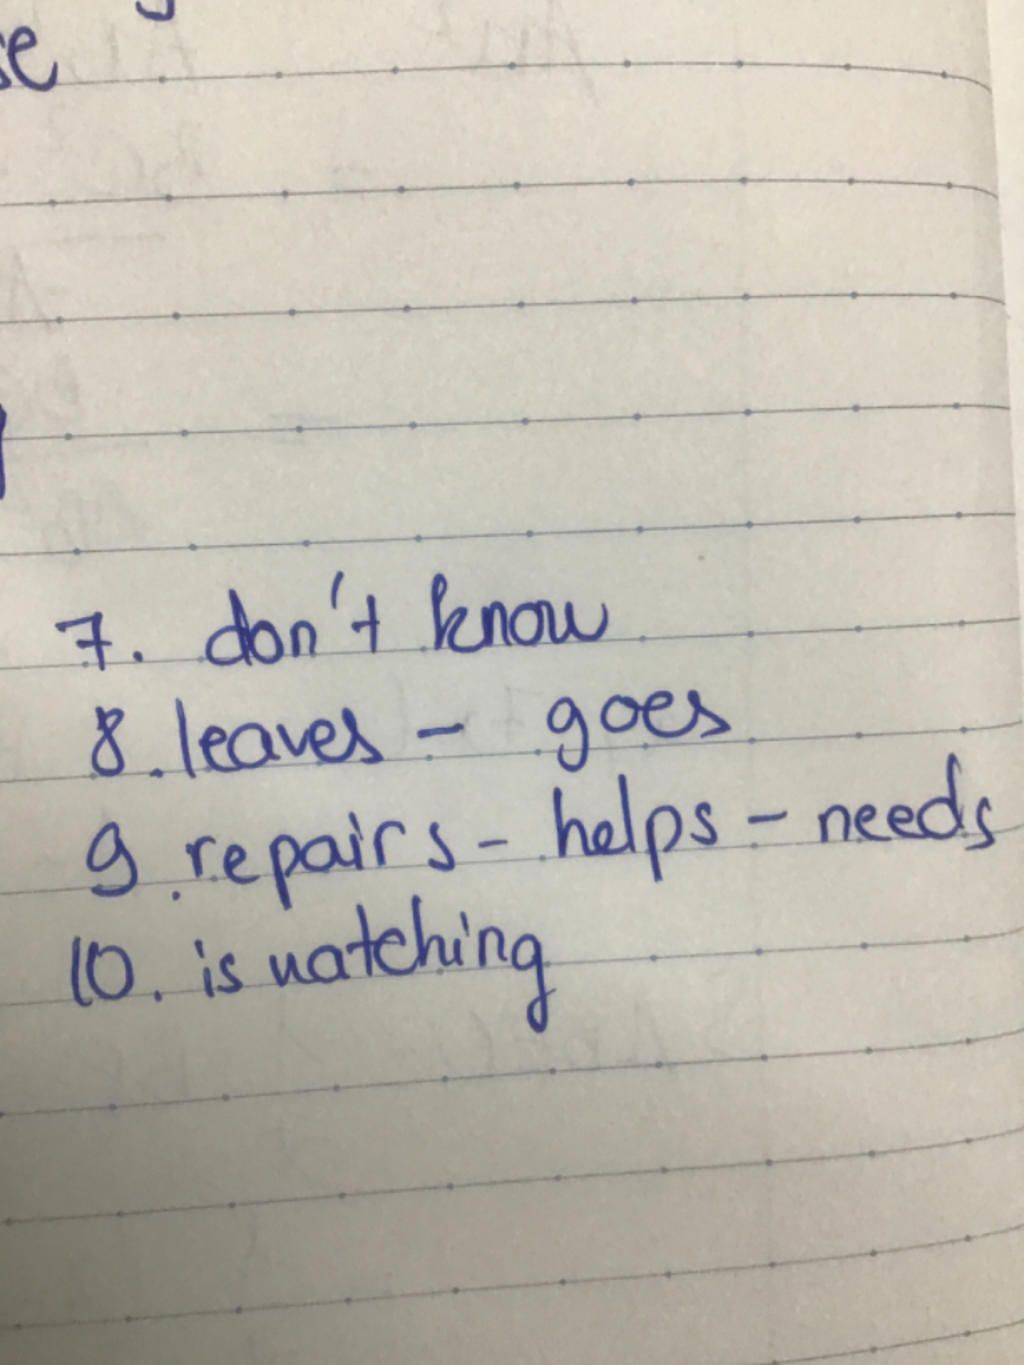 7. don't know
8. leaves - goes
9. repairs - helps - needs
10. is watching